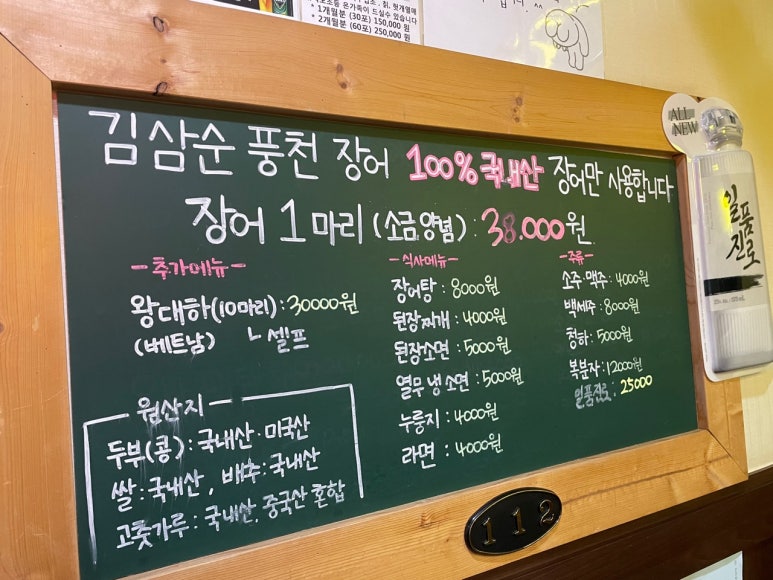 * 1개월분 (30포) 150,000 원
* 2개월분 (60포) 250,000 원
ALL NEW
일품진로
김삼순 풍천 장어 100% 국내산 장어만 사용합니다
장어 1마리 (소금양념) : 38.000원
- 추가메뉴 -
왕대하(10마리) : 30000원
(베트남) ㄴ셀프
- 식사메뉴 -
장어탕 : 8000원
된장찌개 : 4000원
된장소면 : 5000원
열무냉소면 : 5000원
누룽지 : 4000원
라면 : 4000원
- 주류 -
소주·맥주 : 4000원
백세주 : 8000원
청하 : 5000원
복분자 : 12000원
일품진로 : 25000
원산지
두부(콩) : 국내산·미국산
쌀 : 국내산, 배추 : 국내산
고춧가루 : 국내산, 중국산 혼합
112